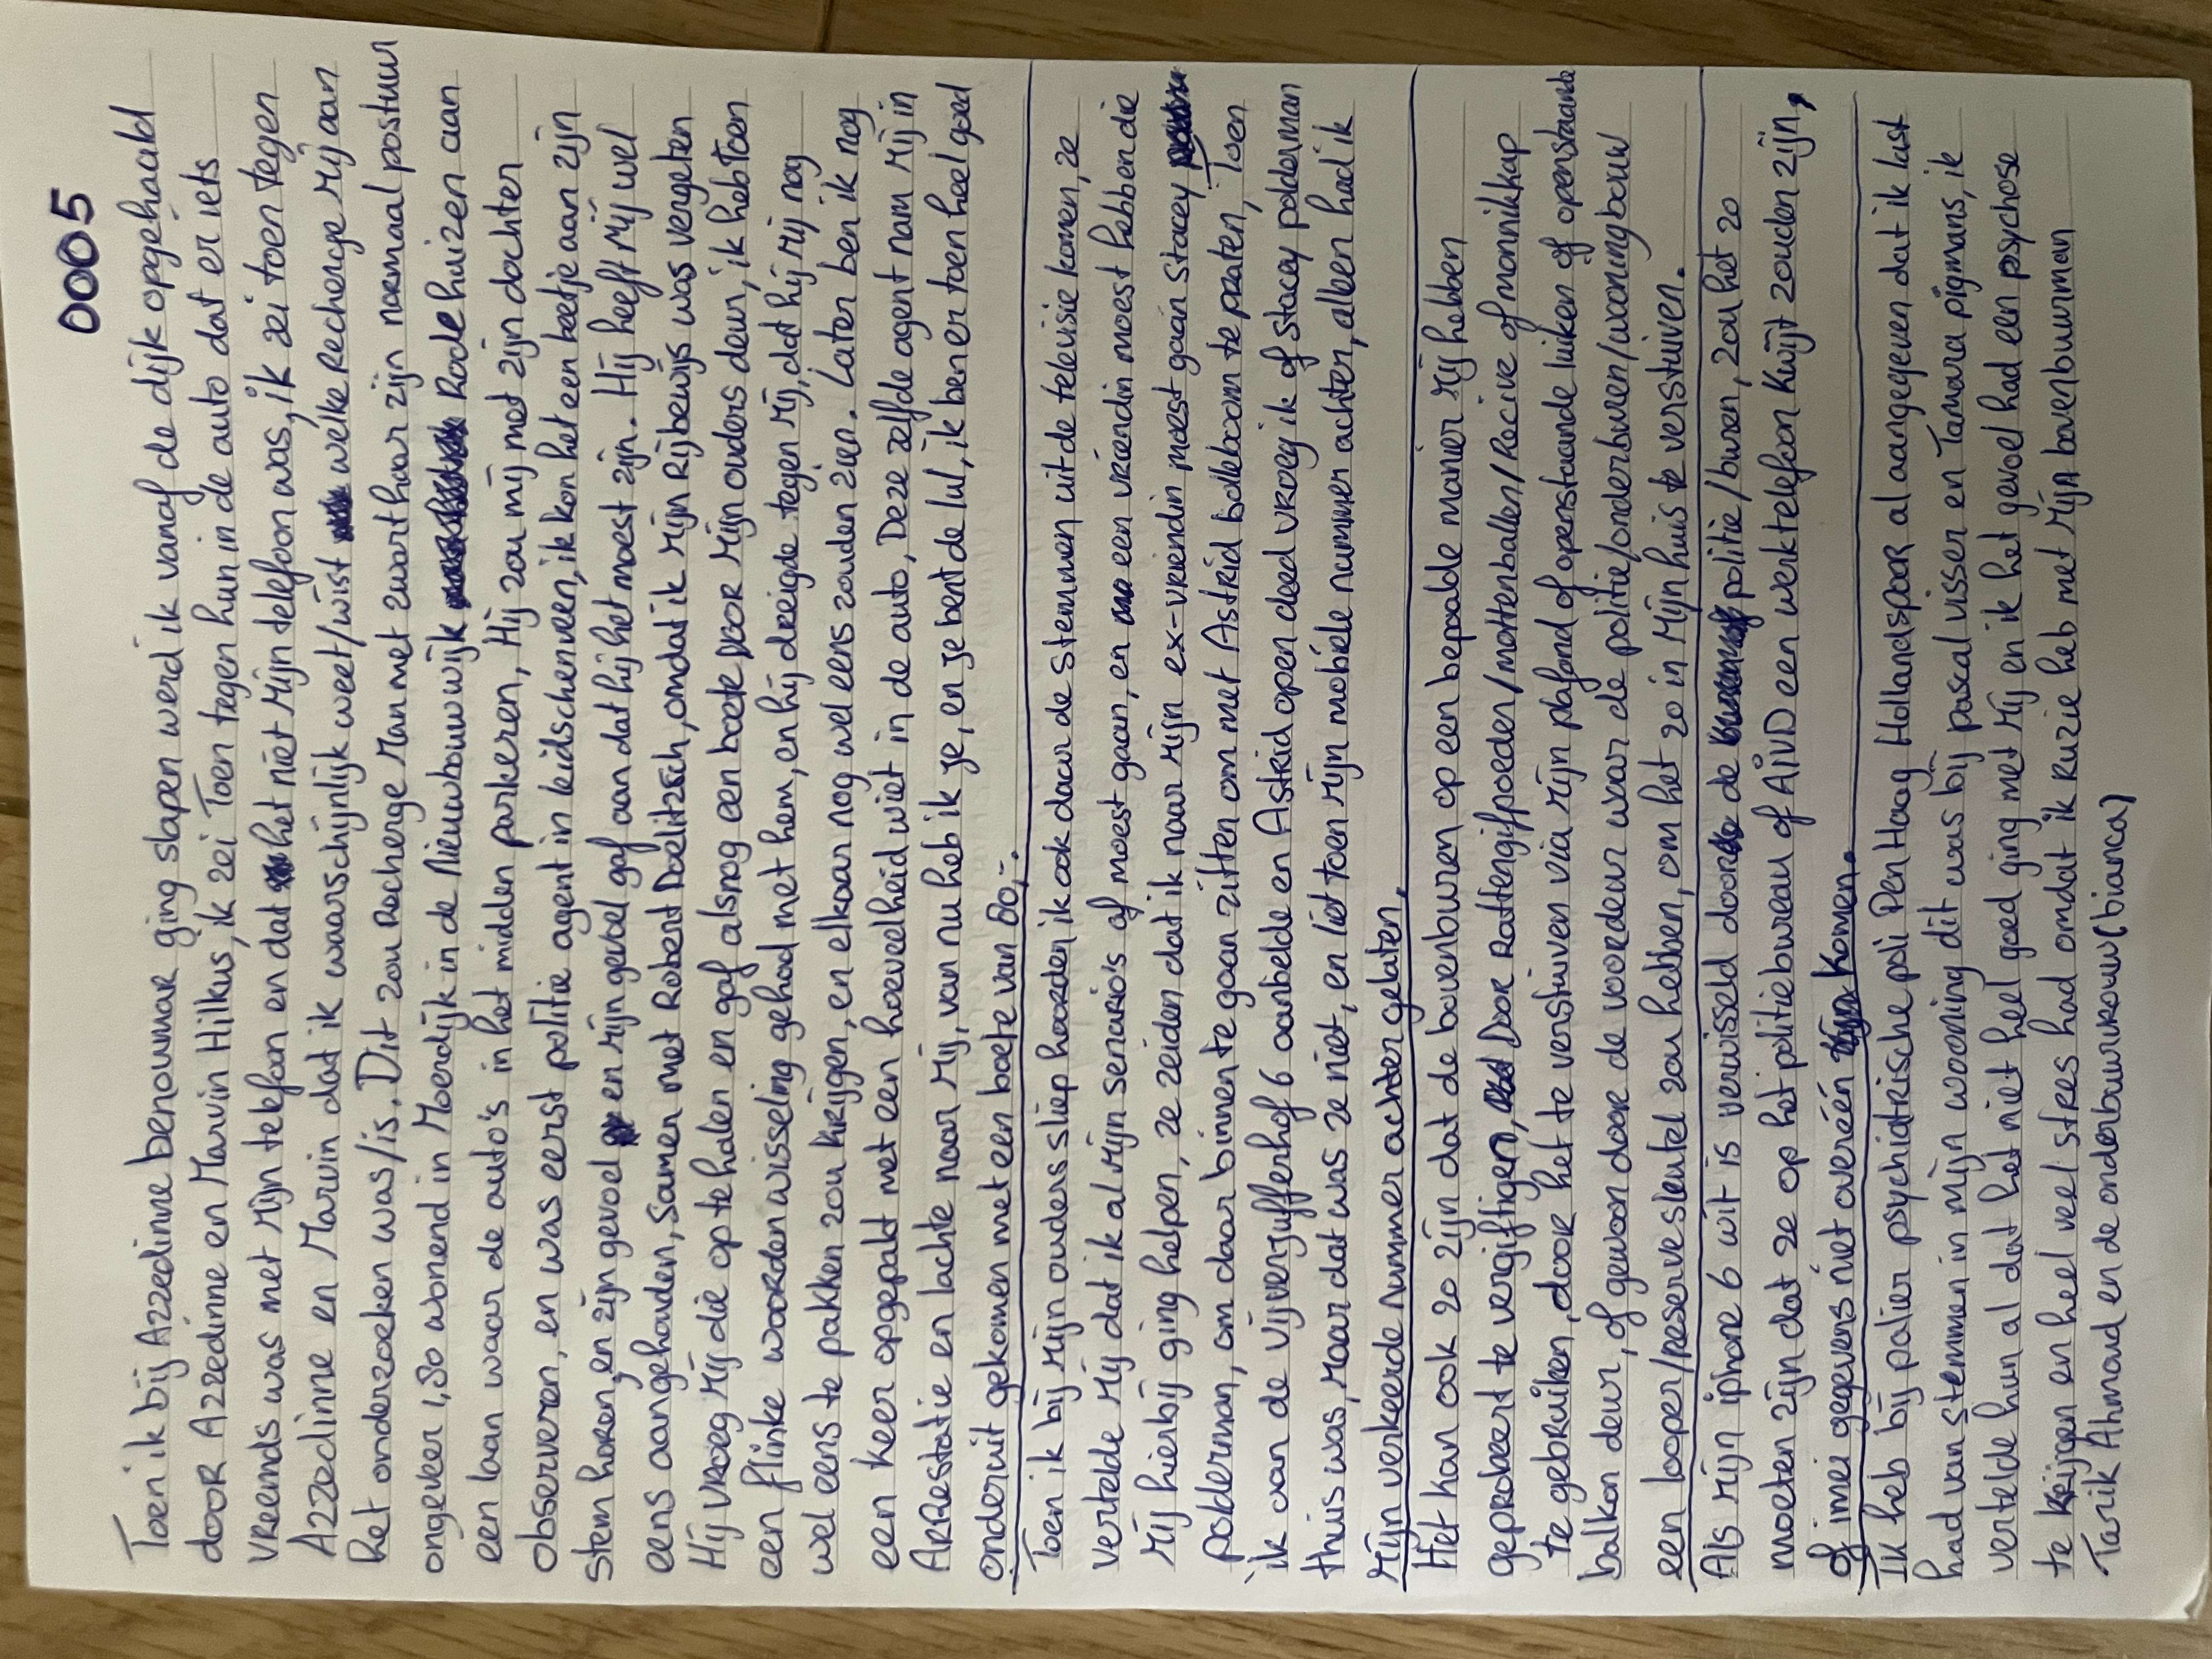 0005
Toen ik bij Azzedinne benoummar ging slapen werd ik vanaf de dijk opgehaald
door Azzedinne en Marvin Hilkus, ik zei Toen tegen hun in de auto dat er iets
vreemds was met mijn telefoon en dat het niet mijn telefoon was, ik zei toen tegen
Azzedinne en Marvin dat ik waarschijnlijk weet/wist welke Recherge mij aan
het onderzoeken was/is. Dit zou Recherge man met zwart haar zijn normaal postuur
ongeveer 1,80 wonend in Moerdijk in de Nieuwbouw wijk Rode huizen aan
een laan waar de auto's in het midden parkeren, Hij zou mij met zijn dochter
observeren, en was eerst politie agent in leidschenveen, ik kon het een beetje aan zijn
stem horen, en zijn gevoel en mijn gevoel gaf aan dat hij het moest zijn. Hij heeft mij wel
eens aangehouden, Samen met Robert Doelitzsch, omdat ik mijn Rijbewijs was vergeten
Hij vroeg mij die op te halen en gaf alsnog een boete Door mijn ouders deur, ik heb Toen
een flinke woorden wisseling gehad met hem, en hij dreigde tegen mij, dat hij mij nog
wel eens te pakken zou krijgen, en elkaar nog wel eens zouden zien. Later ben ik nog
een keer opgepakt met een hoeveelheid wiet in de auto, Deze zelfde agent nam mij in
Arrestatie en lachte naar mij, van nu heb ik je, en je bent de lul, ik ben er toen heel goed
onderuit gekomen met een boete van 80,-.
Toen ik bij mijn ouders sliep hoorden ik ook daar de stemmen uit de televisie komen, ze
vertelde mij dat ik al mijn senario's af moest gaan, en een vriendin moest hebben die
mij hierbij ging helpen, ze zeiden dat ik naar mijn ex-vriendin moest gaan Stacey
polderman, om daar binnen te gaan zitten om met Astrid bolleboom te praten, Toen
ik aan de Vijverjufferhof 6 aanbelde en Astrid open deed vroeg ik of stacey polderman
thuis was, maar dat was ze niet, en liet toen mijn mobiele nummer achter, alleen had ik
mijn verkeerde nummer achter gelaten.
Het kan ook zo zijn dat de bovenburen op een bepaalde manier mij hebben
geprobeert te vergiftigen, Door Rattengifpoeden/mottenballen/Recive of monnikkap
te gebruiken, door het te verstuiven via mijn plafond of openstaande luiken of openstaande
balkon deur, of gewoon door de voordeur waar de politie/onderburen/woningbouw
een looper/reserve sleutel zou hebben, om het zo in mijn huis te verstuiven.
Als mijn iphone 6 wit is verwisseld door de politie/buren, zou het zo
moeten zijn dat ze op het politiebureau of AIVD een werktelefoon kwijt zouden zijn,
of imei gegevens niet overéén komen.
Ik heb bij palier psychiatrische poli Den Haag Hollandspoor al aangegeven dat ik last
had van stemmen in mijn wooning dit was bij pascal visser en Tamara pijgmans, ik
vertelde hun al dat het niet heel goed ging met mij en ik het gevoel had een psychose
te krijgen en heel veel stres had omdat ik ruzie heb met mijn bovenbuurman
Tarik Ahmoud en de onderbuurvrouw (bianca)